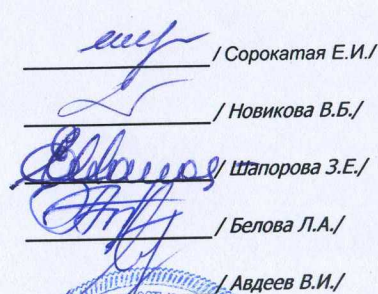 / Сорокатая Е.И./
/ Новикова В.Б./
/ Шапорова З.Е./
/ Белова Л.А./
/ Авдеев В.И./